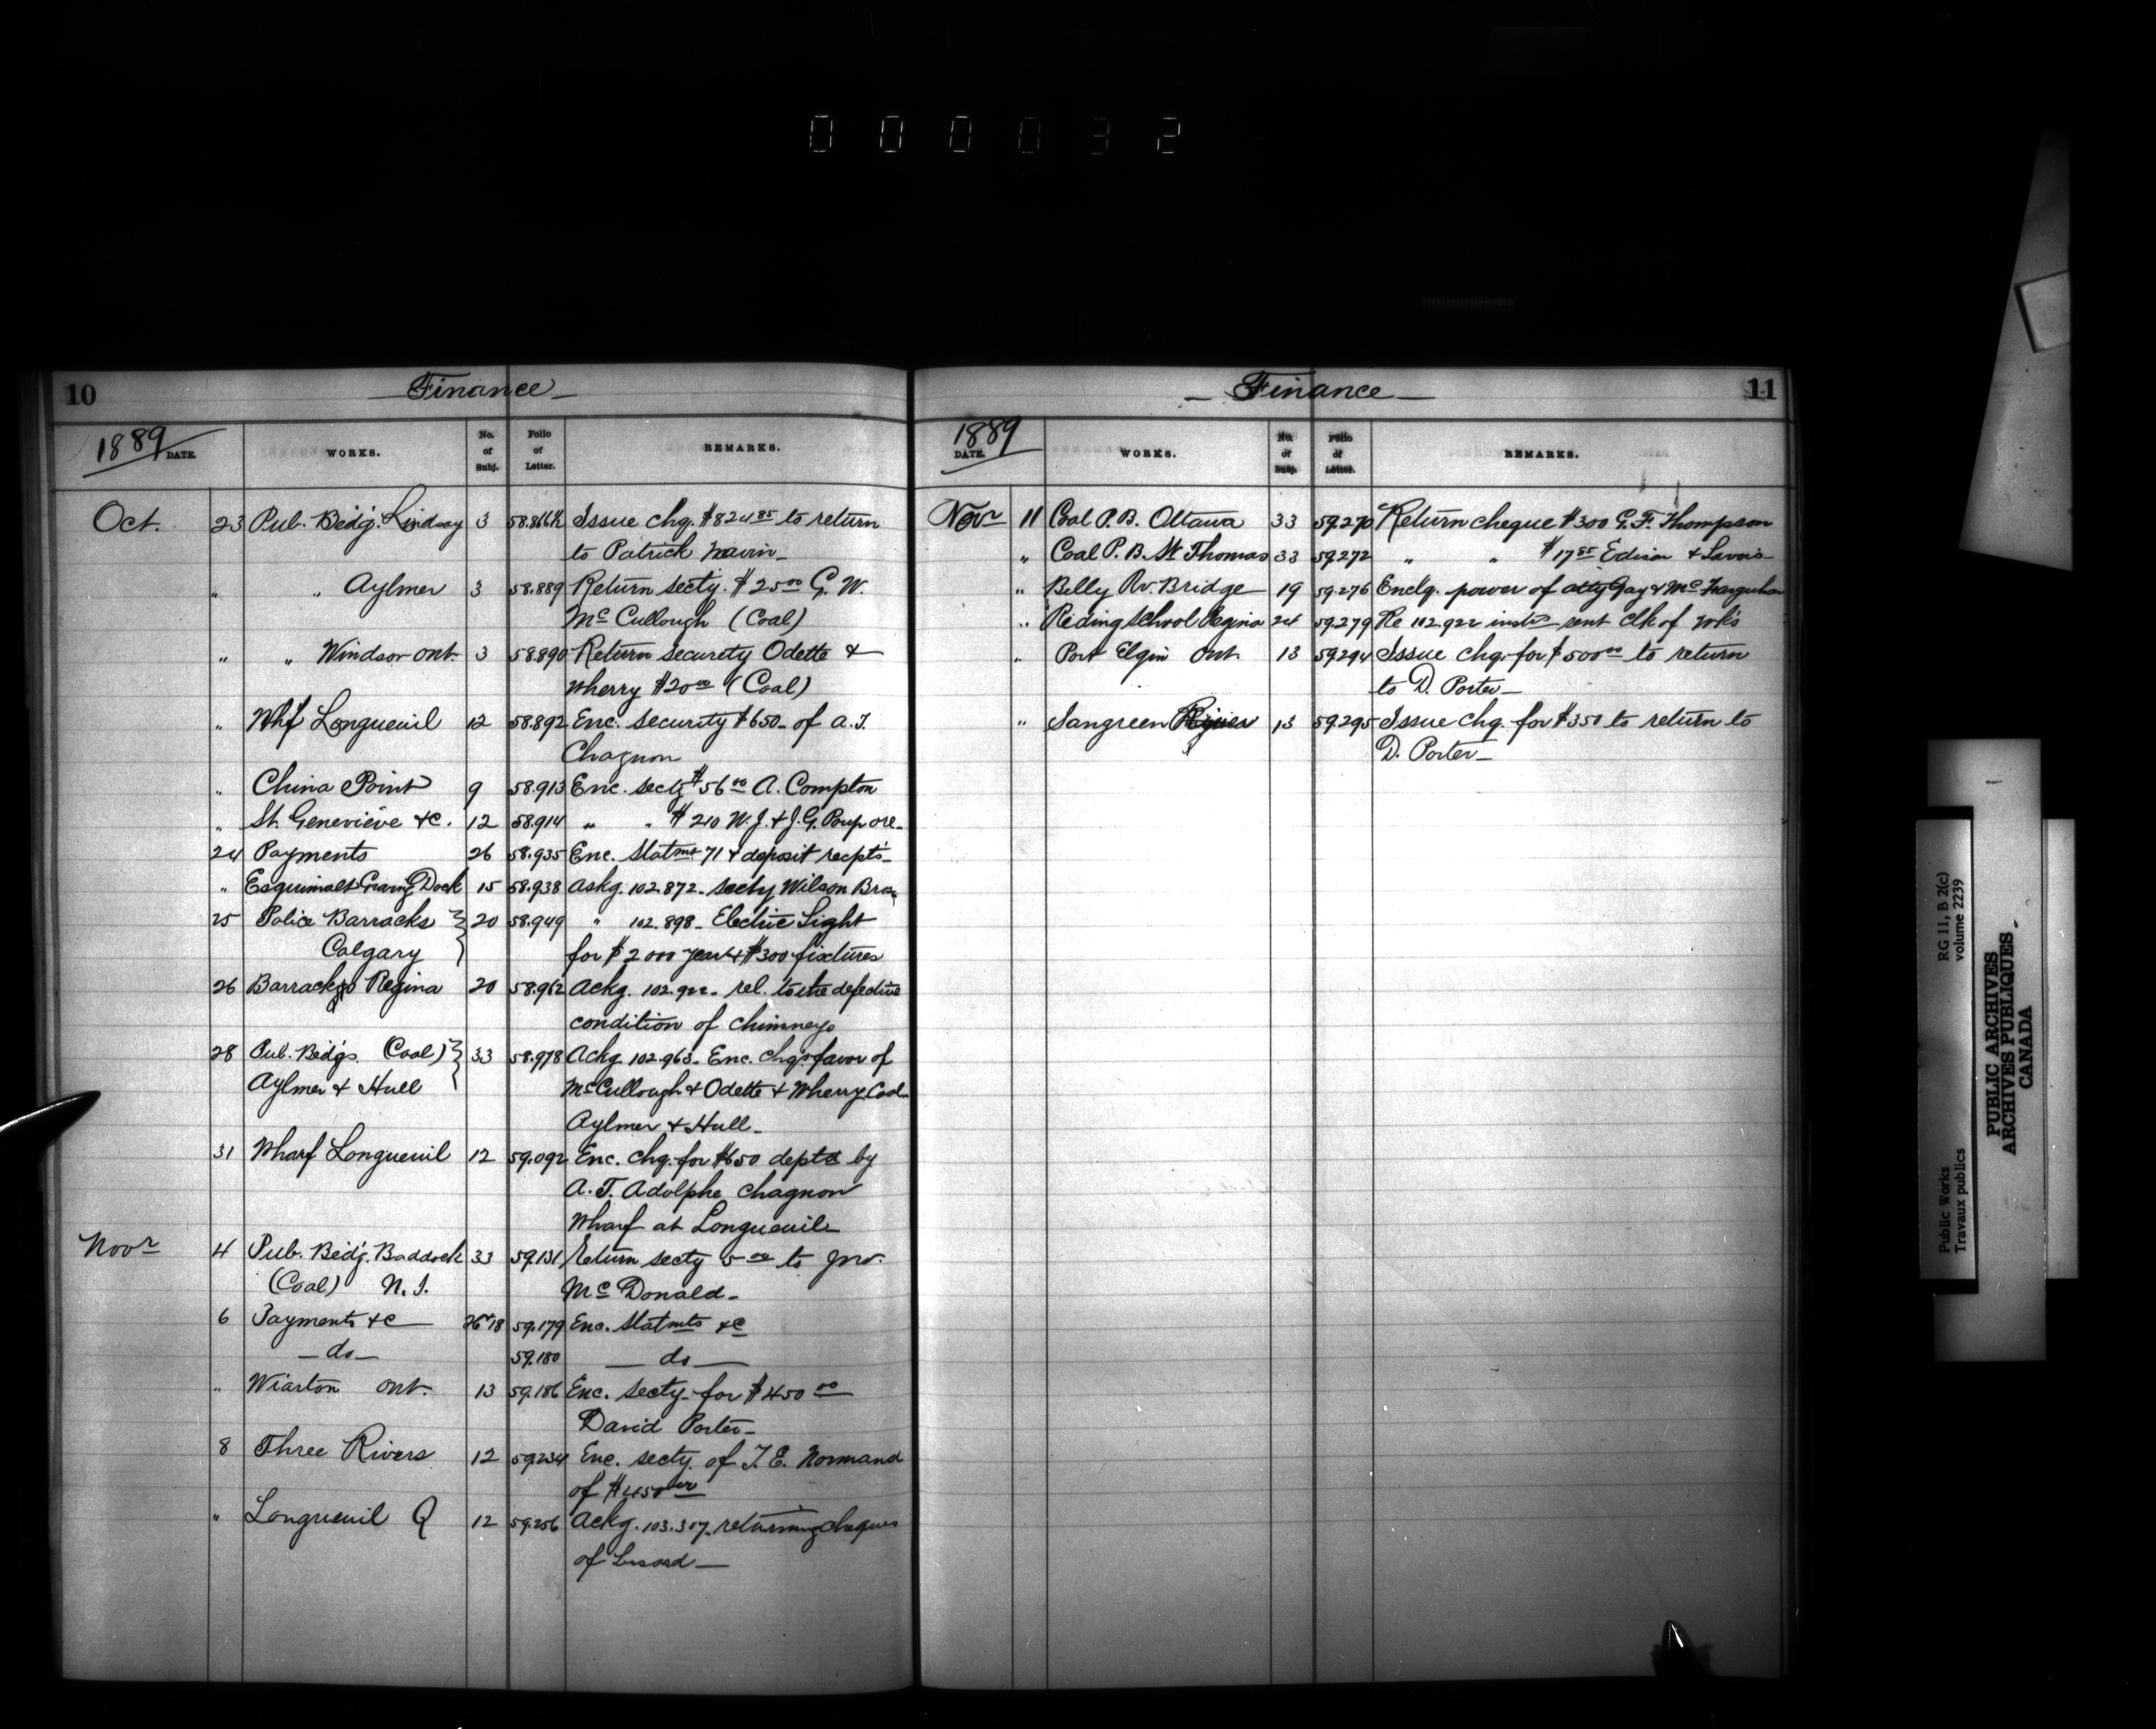 000032
10 Finance
1889 DATE. WORKS. No. of Subj. Folio of Letter. REMARKS.
Oct. 23 Pub. Bldg. Lindsay 3 58.866½ Issue chq. $824 85 to return
to Patrick Navin
" " Aylmer 3 58.889 Return secty. $25 00 G. W.
McCullough (Coal)
" " Windsor Ont. 3 58.890 Return security Odette &
Wherry $20 00 (Coal)
" Whf Longueuil 12 58.892 Enc. security $650 of A. T.
Chagnon
" China Point 9 58.913 Enc. secty $56 00 A. Compton
" St. Geneviève &c. 12 58.914 " " $210 W. J. & J. G. Poupore
24 Payments 26 58.935 Enc. Statmt 71 & deposit recpts
" Esquimalt Graving Dock 15 58.938 Askg. 102.872 secty Wilson Bros
25 Police Barracks 20 58.949 " 102.898 Electric Light
Calgary for $2000 year & $300 fixtures
26 Barracks Regina 20 58.962 Ackg. 102.922 rel. to the defective
condition of chimneys
28 Pub. Bldgs. Coal) 33 58.978 Ackg 102.963. Enc. chqs favor of
Aylmer & Hull McCullough & Odette & Wherry Coal
Aylmer & Hull
31 Wharf Longueuil 12 59.092 Enc. chq. for $650 deptd by
A. T. Adolphe Chagnon
Wharf at Longueuil
Novr 4 Pub. Bldg. Baddeck 33 59.131 Return secty 5 00 to Jno.
(Coal) N. S. McDonald
6 Payments &c 26 & 18 59.179 Enc. Statmts &c
do 59.180 do
" Wiarton Ont. 13 59.186 Enc. secty for $450 00
David Porter
8 Three Rivers 12 59.234 Enc. secty. of T. E. Normand
of $450 00
" Longueuil Q 12 59.256 Ackg. 103.307 returning cheques
of
Finance 11
1889 DATE. WORKS. No. of Subj. Folio of Letter. REMARKS.
Novr 11 Coal P. B. Ottawa 33 59.270 Return cheque $300 G. F. Thompson
" Coal P. B. St Thomas 33 59.272 " " $17 85 &
" Belly Rv. Bridge 19 59.276 Enclg. power of atty Gay & McFarquhar
" Riding School Regina 24 59.279 Re 102.922 sent Clk of Wks
" Port Elgin Ont. 13 59.294 Issue chq. for $500 00 to return
to D. Porter
" Sangreen 13 59.295 Issue chq. for $350 to return to
D. Porter
Public Works
Travaux publics
RG 11, B 2(c)
volume 2239
PUBLIC ARCHIVES
ARCHIVES PUBLIQUES
CANADA